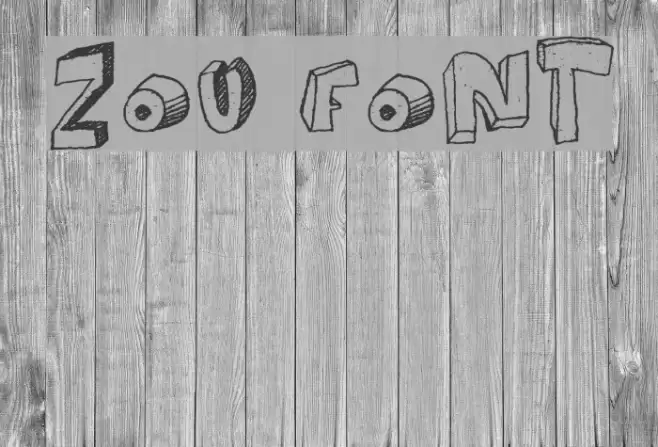 ZoU FoNT